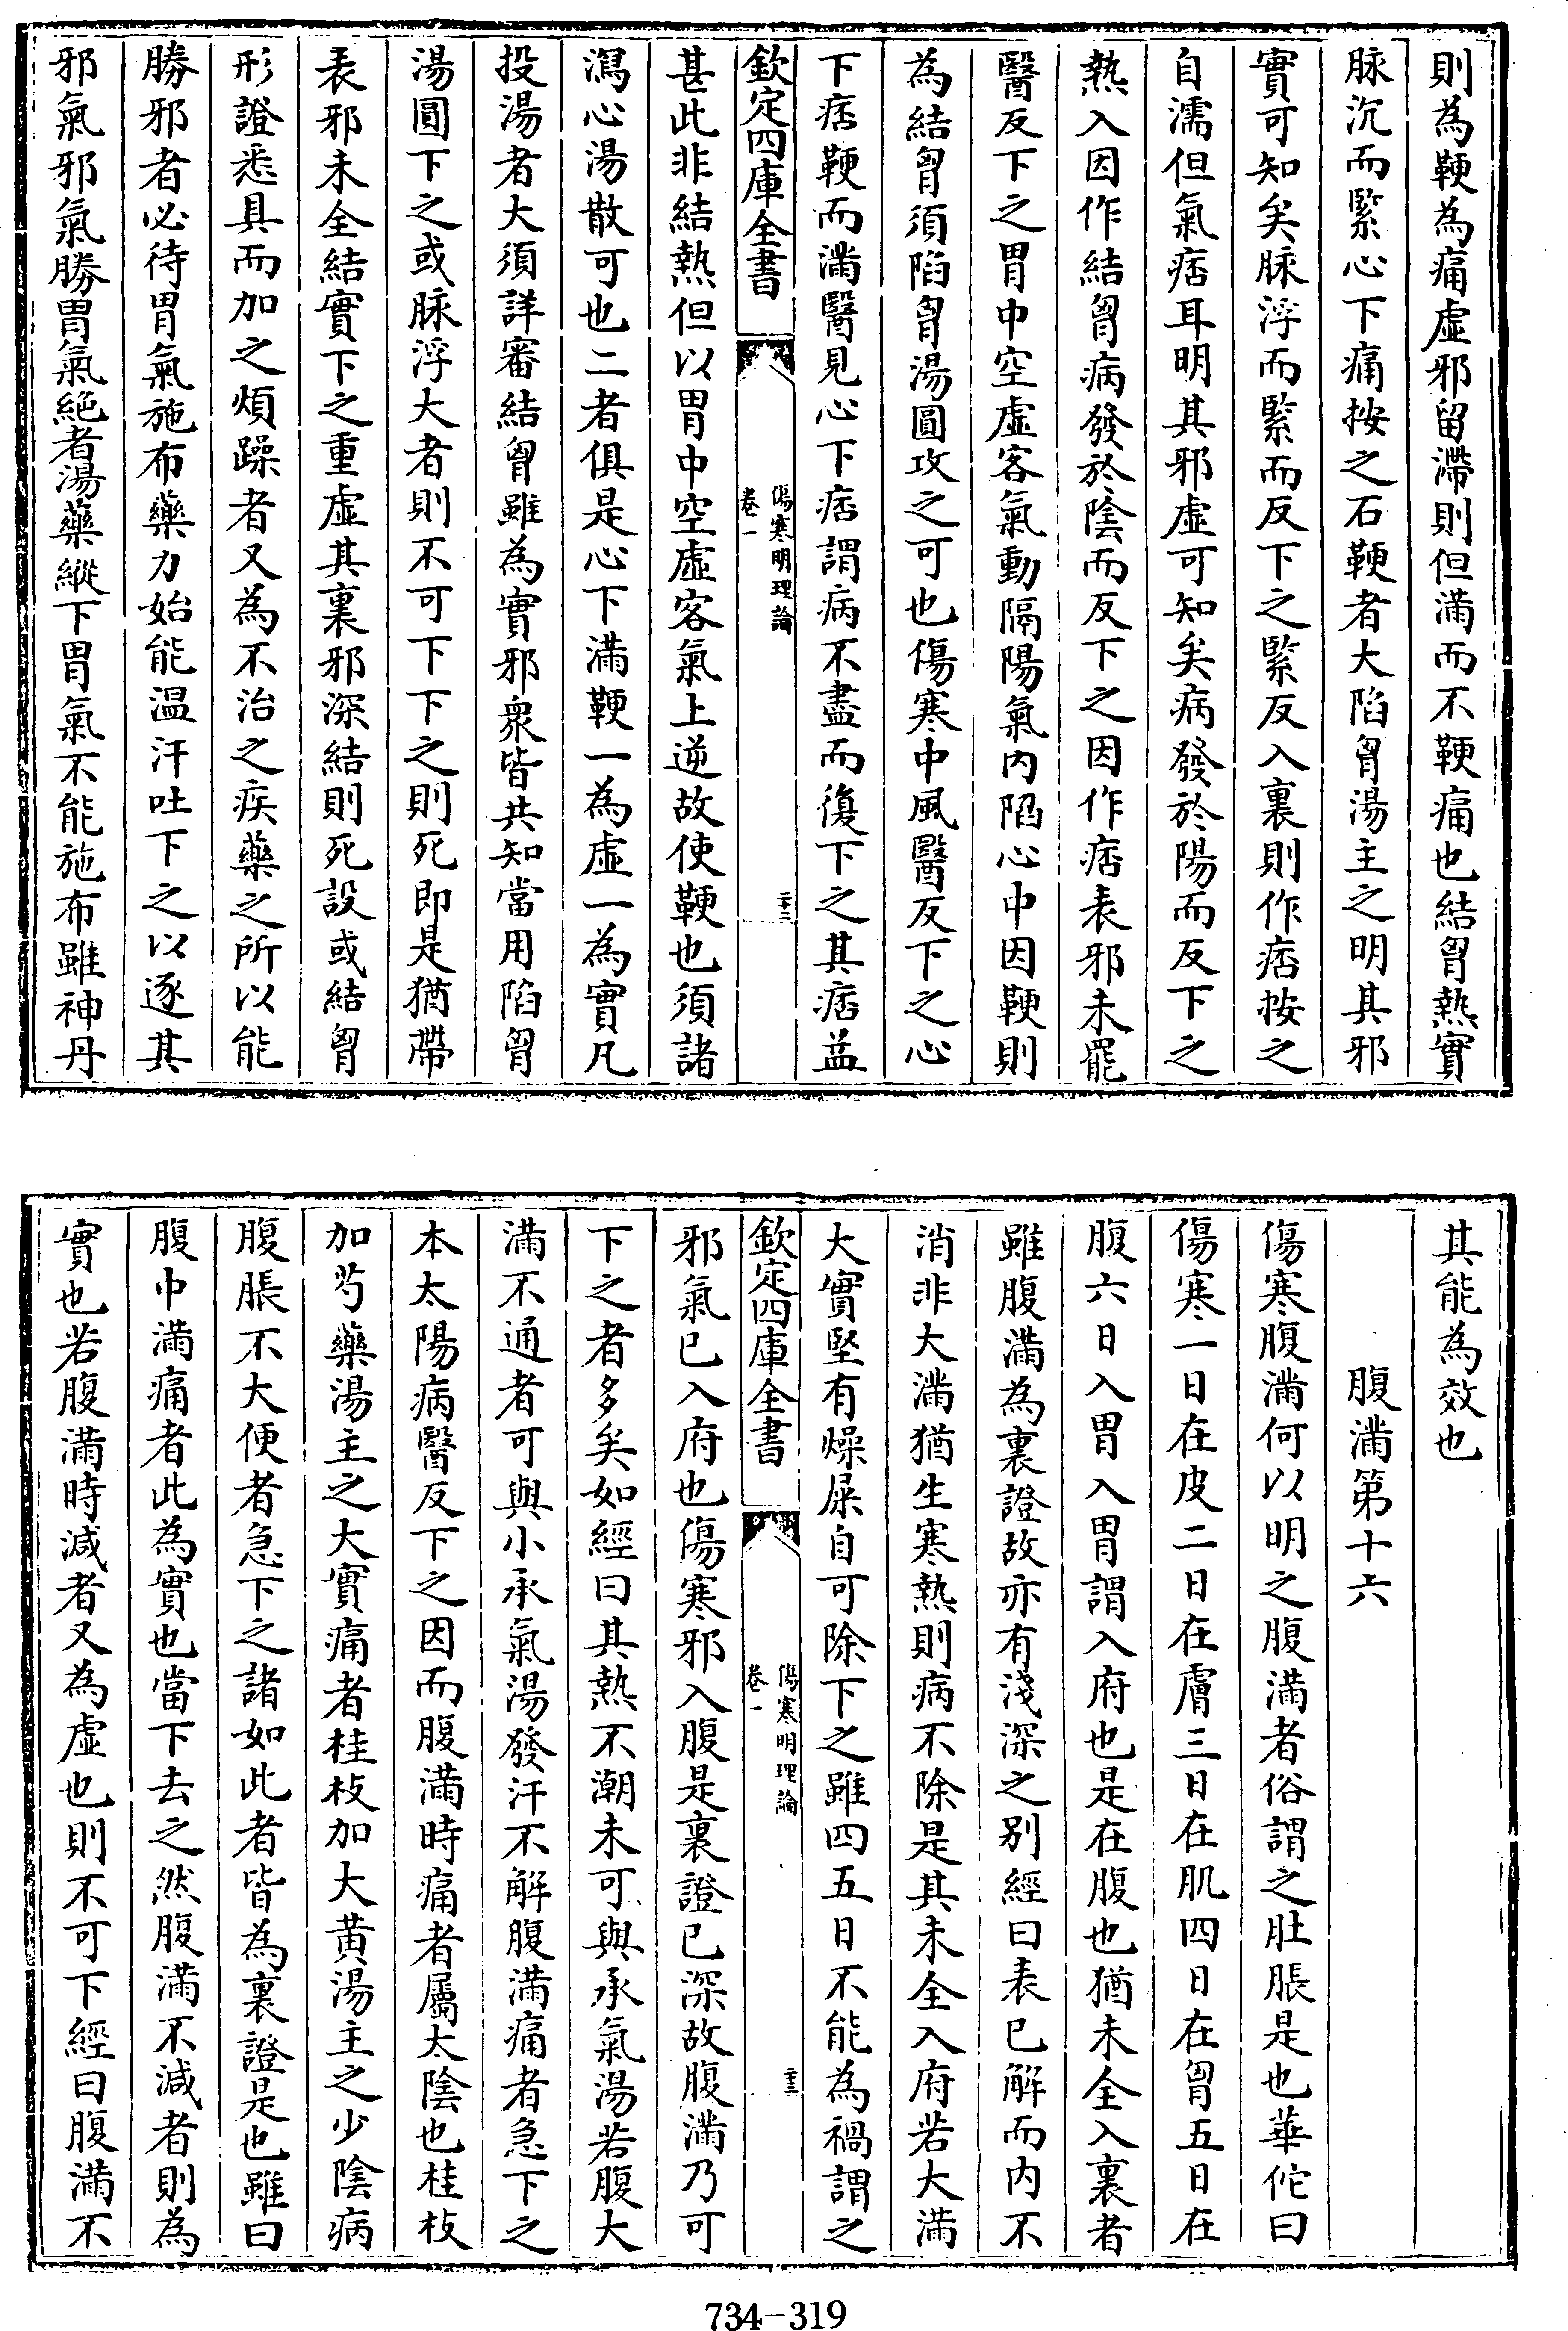 則為鞕為痛虛邪留滯則但滿而不鞕痛也結胷熱實
脉沉而緊心下痛按之石鞕者大陷胷湯主之明其邪
實可知矣脉浮而緊而反下之緊反入裏則作痞按之
自濡但氣痞耳明其邪虛可知矣病發於陽而反下之
熱入因作結胷病發於陰而反下之因作痞表邪未罷
醫反下之胃中空虛客氣動隔陽氣内陷心中因鞕則
為結胷須陷胷湯圓攻之可也傷寒中風醫反下之心
下痞鞕而滿醫見心下痞謂病不盡而復下之其痞益
欽定四庫全書
傷寒明理論
卷一
二十二
甚此非結熱但以胃中空虛客氣上逆故使鞕也須諸
瀉心湯散可也二者俱是心下滿鞕一為虛一為實凡
投湯者大須詳審結胷雖為實邪衆皆共知當用陷胷
湯圓下之或脉浮大者則不可下下之則死即是猶帶
表邪未全結實下之重虛其裏邪深結則死設或結胷
形證悉具而加之煩躁者又為不治之疾藥之所以能
勝邪者必待胃氣施布藥力始能温汗吐下之以逐其
邪氣邪氣勝胃氣絶者湯藥縱下胃氣不能施布雖神丹
其能為效也
腹滿第十六
傷寒腹滿何以明之腹滿者俗謂之肚脹是也華佗曰
傷寒一日在皮二日在膚三日在肌四日在胷五日在
腹六日入胃入胃謂入府也是在腹也猶未全入裏者
雖腹滿為裏證故亦有淺深之別經曰表已解而内不
消非大滿猶生寒熱則病不除是其未全入府若大滿
大實堅有燥屎自可除下之雖四五日不能為禍謂之
欽定四庫全書
傷寒明理論
卷一
二十三
邪氣已入府也傷寒邪入腹是裏證已深故腹滿乃可
下之者多矣如經曰其熱不潮未可與承氣湯若腹大
滿不通者可與小承氣湯發汗不解腹滿痛者急下之
本太陽病醫反下之因而腹滿時痛者屬太陰也桂枝
加芍藥湯主之大實痛者桂枝加大黄湯主之少陰病
腹脹不大便者急下之諸如此者皆為裏證是也雖曰
腹中滿痛者此為實也當下去之然腹滿不減者則為
實也若腹滿時減者又為虛也則不可下經曰腹滿不
734-319